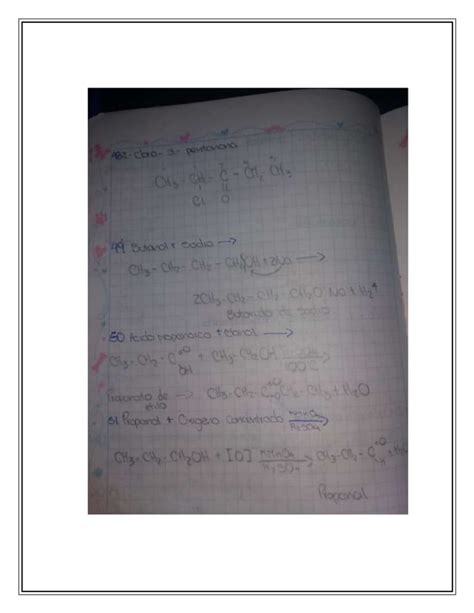 48 2-cloro-3-pentanona
CH3-CH-C-CH2-CH3
Cl O
49 Butanol + Sodio →
CH3-CH2-CH2-CH2OH + 2Na →
2CH3-CH2-CH2-CH2O Na + H2↑
Butoxido de sodio
50 Acido Propanoico + etanol →
CH3-CH2-C=O OH + CH3-CH2OH 100°C
Propanato de → CH3-CH2-C=O CH2-CH3 + H2O
etilo
51 Propanol + Oxigeno concentrado KMnO4 H2SO4
CH3-CH2-CH2OH + [O] KMnO4 H2SO4 → CH3-CH2-C=O H + H2O
Propanal